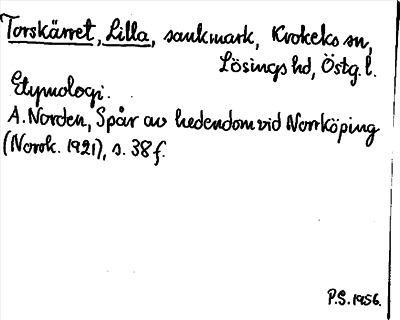 Torskärret, Lilla, sankmark, Krokeks sn,
Lösings hd, Östg. l.
Etymologi.
A. Norden, Spår av hedendom vid Norrköping
(Norrk. 1921), s. 38 f.
P.S. 1956.